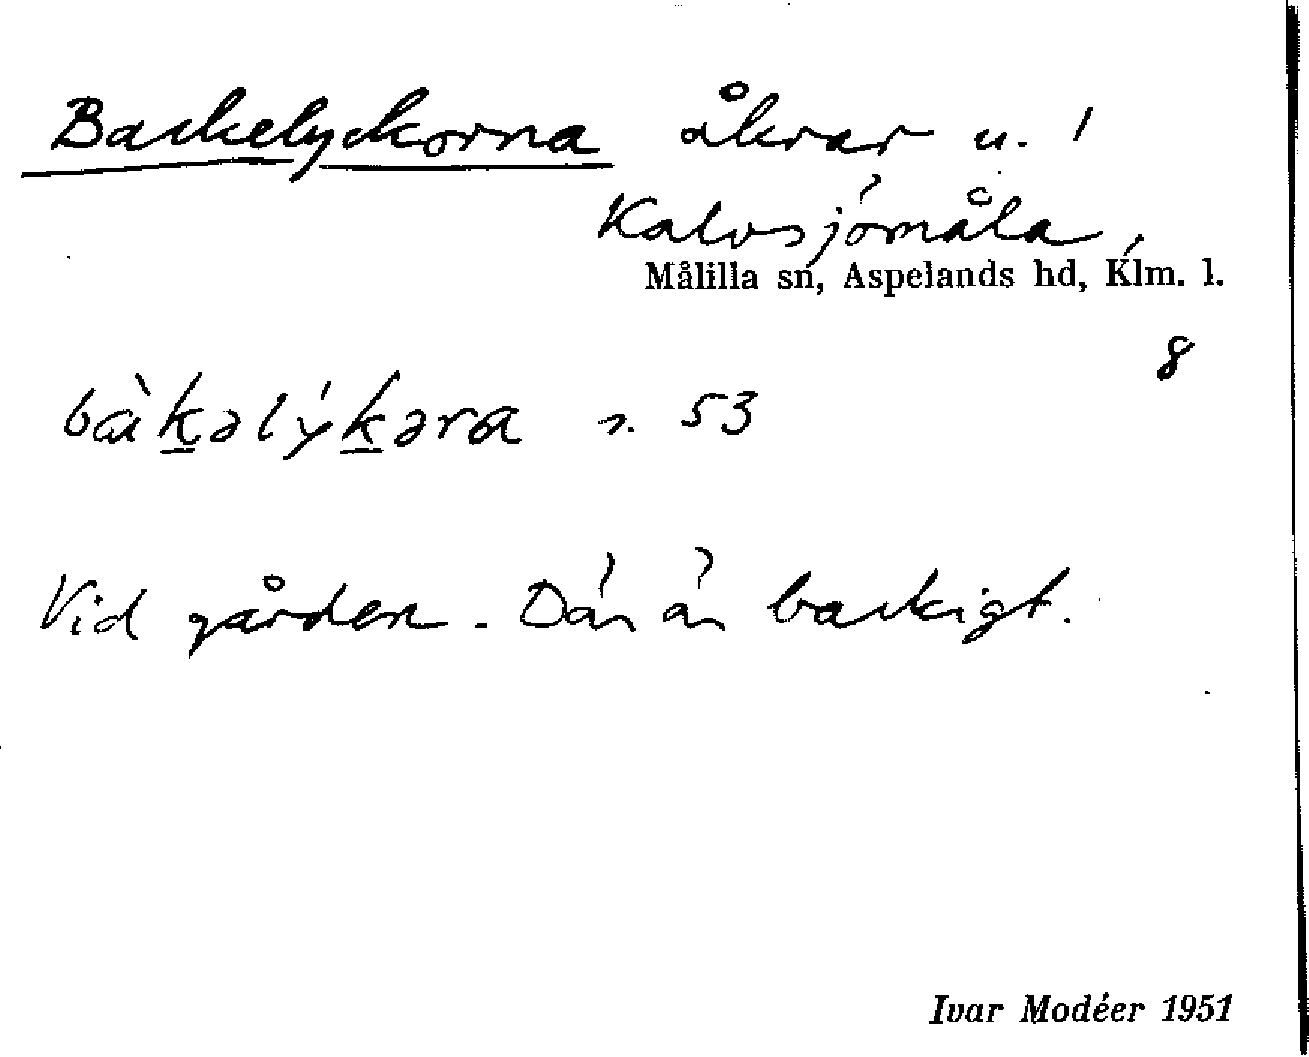 Backelyckorna åkrar u. 1
Kalvsjömåla,
Målilla sn, Aspelands hd, Klm. l.
8
bàk̲əlýk̲əra s. 53
Vid gården. Där är backigt.
Ivar Modéer 1951